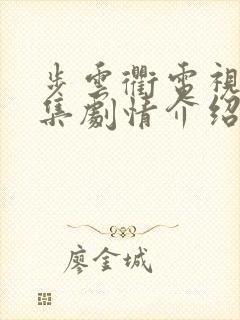 步雲衢電視
集劇情介紹
廖金城